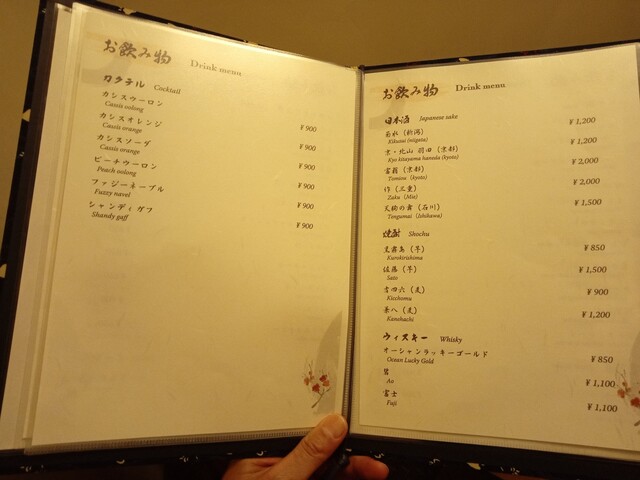 お飲み物 Drink menu
カクテル Cocktail
カシスウーロン ¥900
Cassis oolong
カシスオレンジ ¥900
Cassis orange
カシスソーダ ¥900
Cassis orange
ピーチウーロン ¥900
Peach oolong
ファジーネーブル ¥900
Fuzzy navel
シャンディガフ ¥900
Shandy gaff
お飲み物 Drink menu
日本酒 Japanese sake
菊水（新潟） ¥1,200
Kikusui (niigata)
京・北山 羽田（京都） ¥1,200
Kyo kitayama haneda (kyoto)
富翁（京都） ¥2,000
Tomiou (kyoto)
作（三重） ¥2,000
Zaku (Mie)
天狗の舞（石川） ¥1,500
Tengumai (Ishikawa)
焼酎 Shochu
黒霧島（芋） ¥850
Kurokirishima
佐藤（芋） ¥1,500
Sato
吉四六（麦） ¥900
Kicchomu
兼八（麦） ¥1,200
Kanehachi
ウィスキー Whisky
オーシャンラッキーゴールド ¥850
Ocean Lucky Gold
¥1,100
Ao
富士 ¥1,100
Fuji